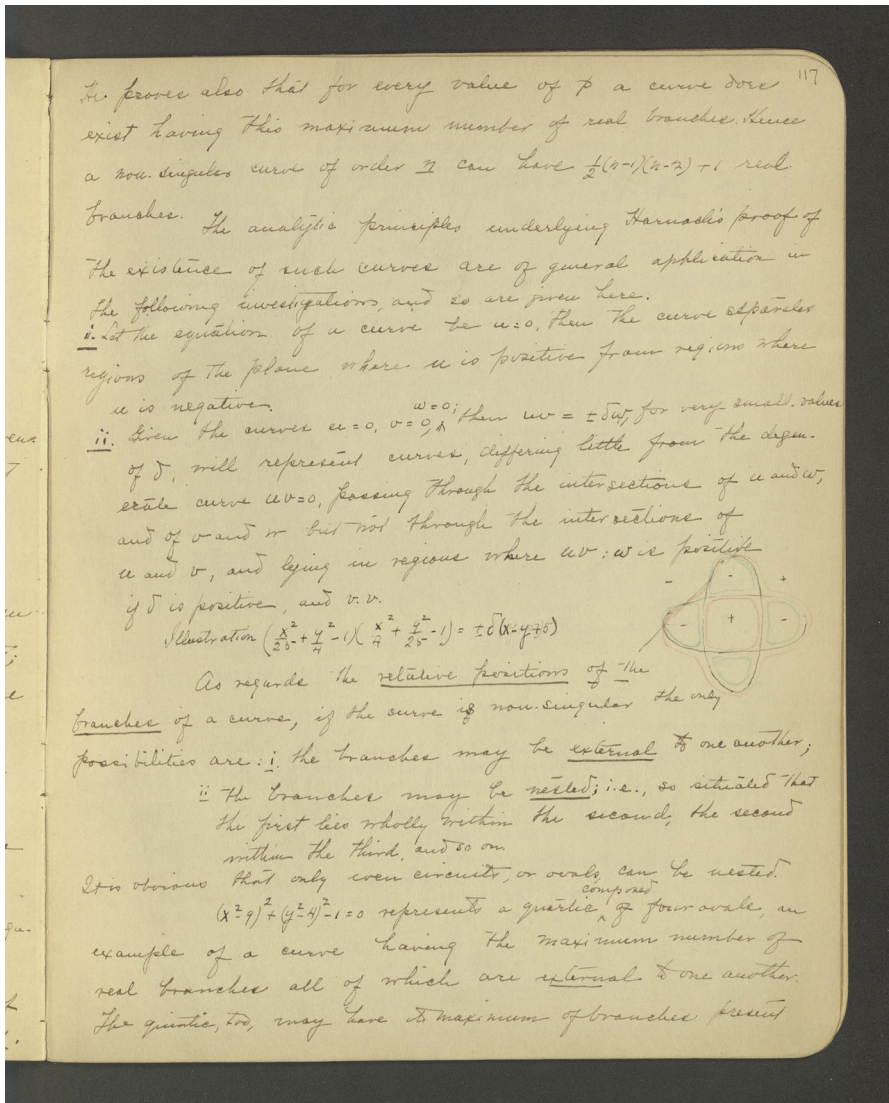 117
He proves also that for every value of p a curve does
exist having this maximum number of real branches. Hence
a non-singular curve of order n can have ½(n-1)(n-2)+1 real
branches.
The analytic principles underlying Harnack's proof of
the existence of such curves are of general application in
the following investigations, and so are given here.
i. Let the equation of a curve be u=0, then the curve separates
regions of the plane where u is positive from regions where
u is negative.
ii. Given the curves u=0, v=0, w=0; then uv = ±δw, for very small values
of δ, will represent curves, differing little from the degen-
erate curve uv=0, passing through the intersections of u and w,
and of v and w but not through the intersections of
u and v, and lying in regions where uv:w is positive
if δ is positive, and v.v.
Illustration (x²/25 + y²/4 - 1)(x²/4 + y²/25 - 1) = ±δ(x-y+5)
- - +
- + -
-
As regards the relative positions of the
branches of a curve, if the curve is non-singular the only
possibilities are: i. the branches may be external to one another;
ii the branches may be nested; i.e., so situated that
the first lies wholly within the second, the second
within the third, and so on.
It is obvious that only even circuits, or ovals, can be nested.
(x²-9)²+(y²-4)²-1=0 represents a quartic composed of four ovals, an
example of a curve having the maximum number of
real branches all of which are external to one another.
The quintic, too, may have its maximum of branches present